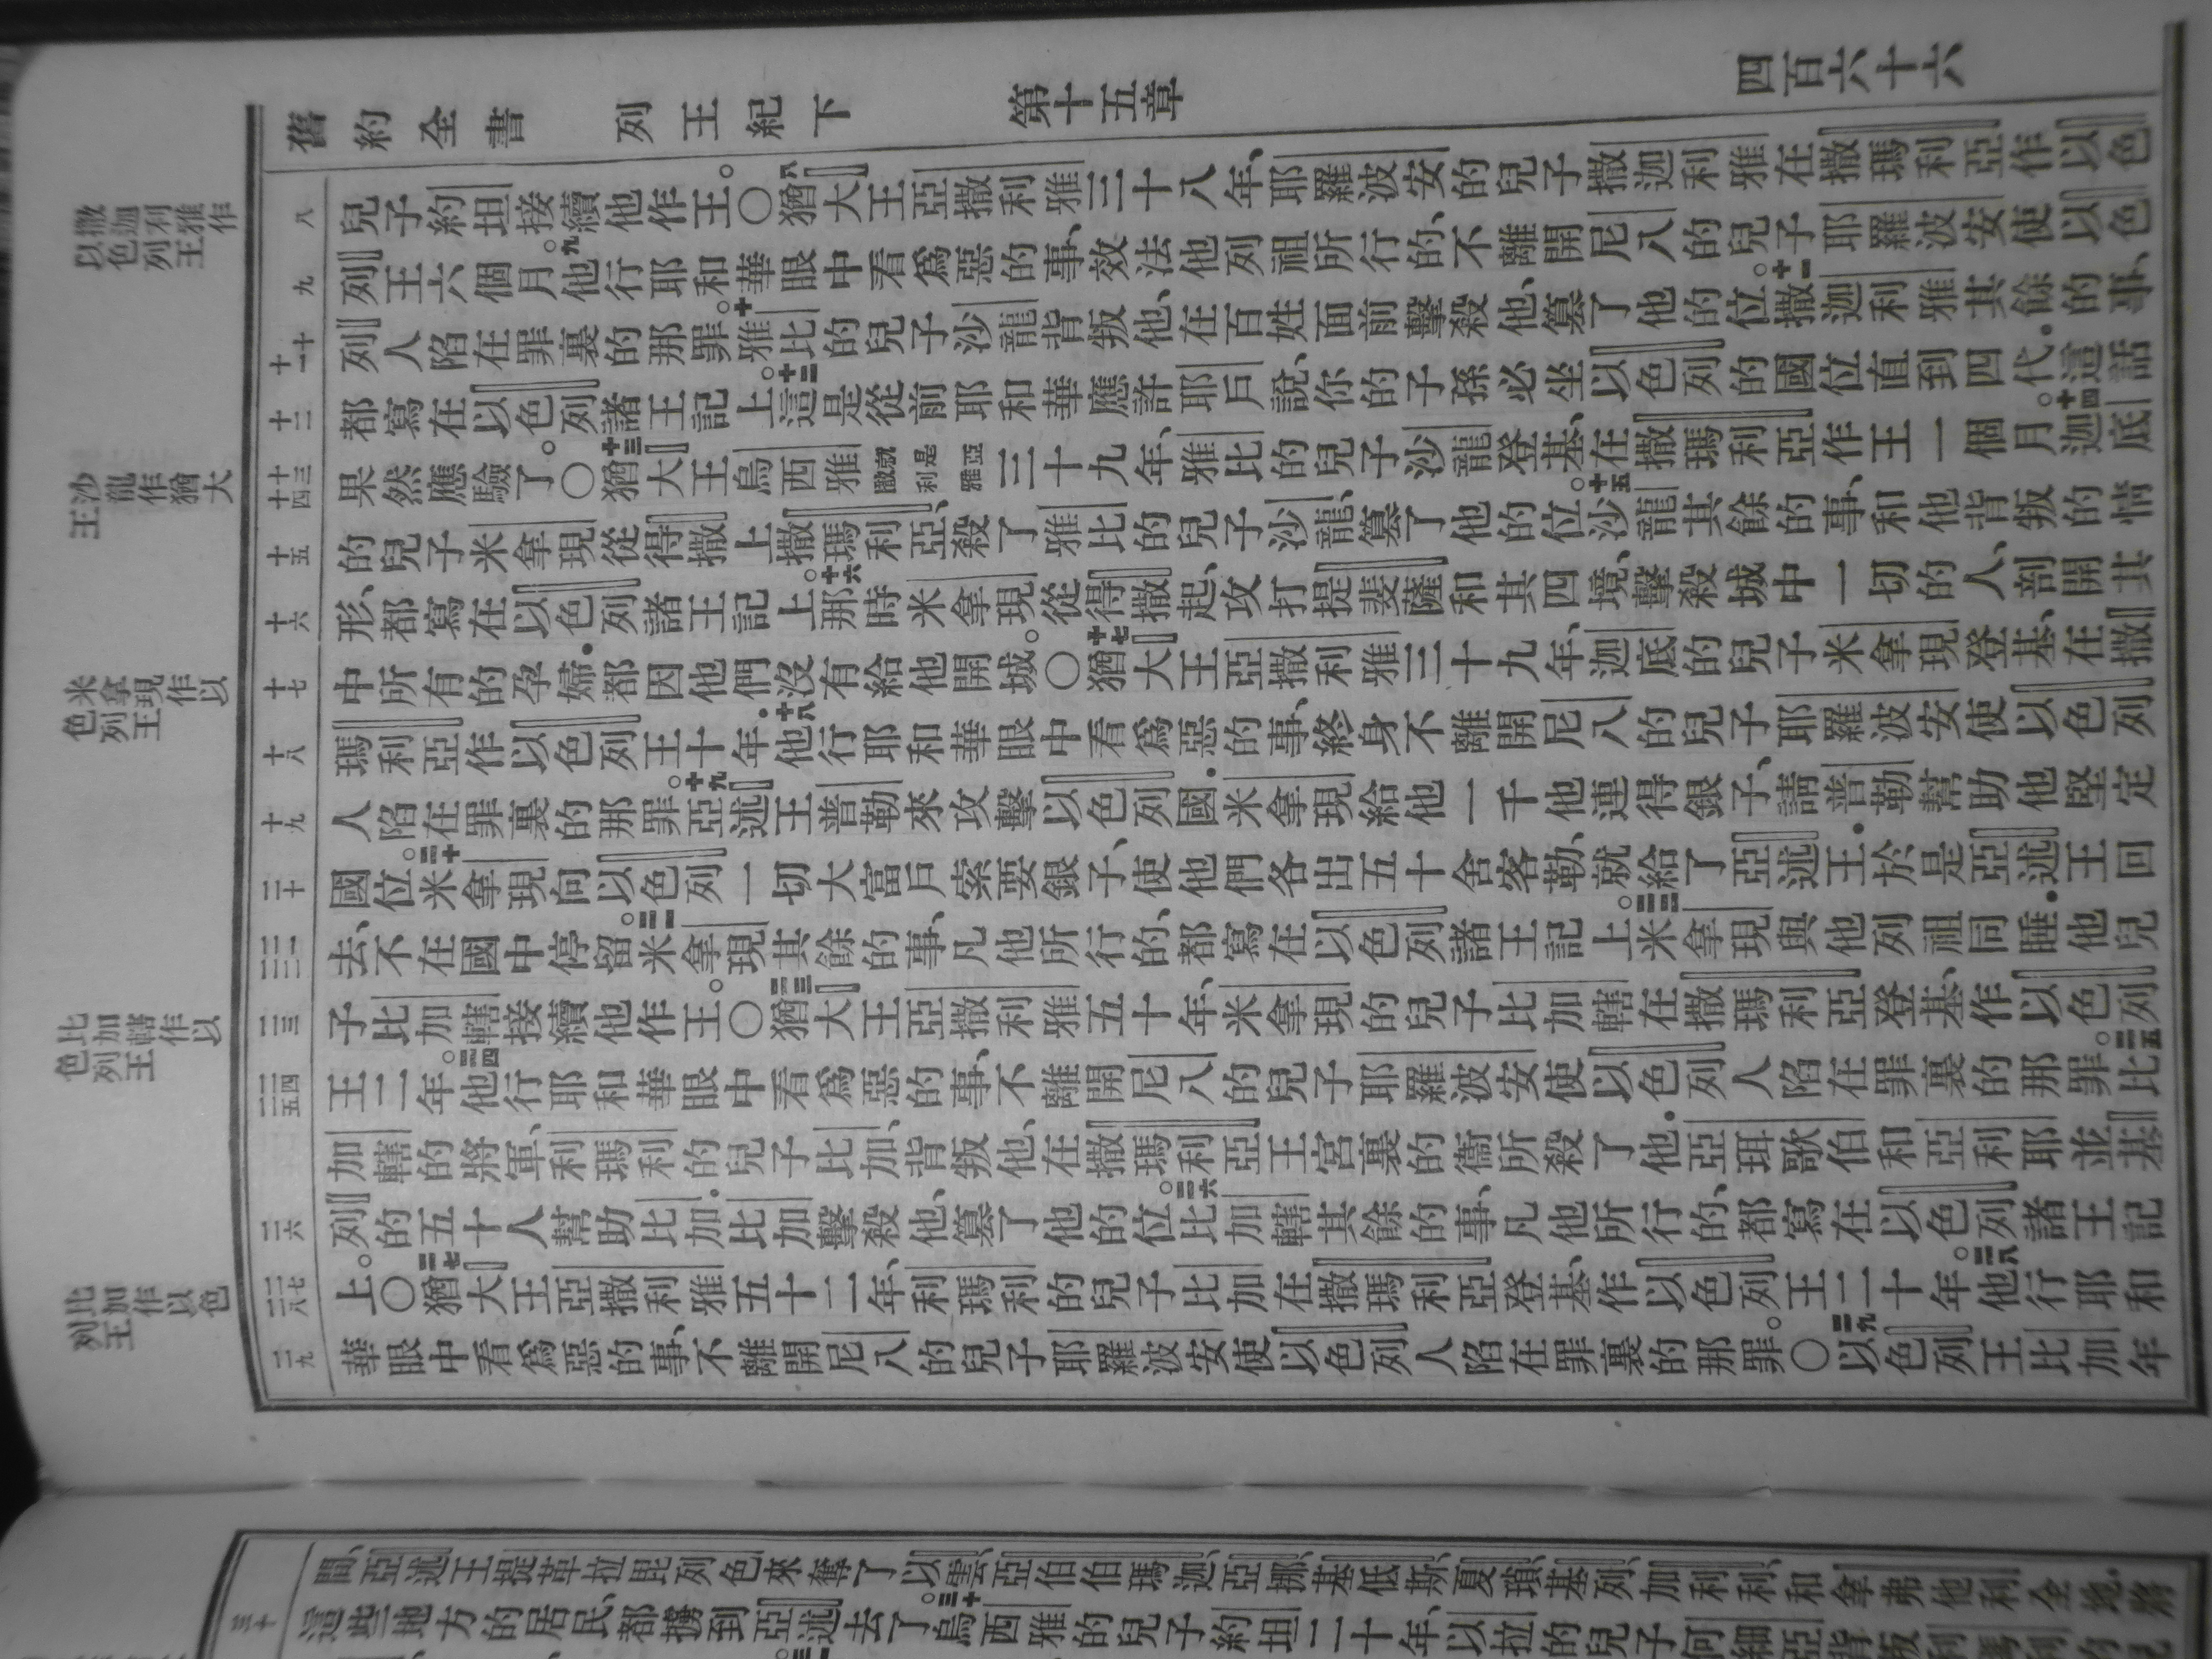 舊約全書 列王紀下 第十五章 四百六十六
撒迦利雅作
以色列王
八
兒子約坦接續他作王。〇八猶大王亞撒利雅三十八年、耶羅波安的兒子撒迦利雅在撒瑪利亞作以色
九
列王六個月。九他行耶和華眼中看爲惡的事、效法他列祖所行的、不離開尼八的兒子耶羅波安使以色
十 十一
列人陷在罪裏的那罪。十雅比的兒子沙龍背叛他、在百姓面前擊殺他、篡了他的位。十一撒迦利雅其餘的事、
十二
都寫在以色列諸王記上。十二這是從前耶和華應許耶戶說、你的子孫必坐以色列的國位直到四代.這話
沙龍作猶大
王
十三 十四
果然應驗了。〇十三猶大王烏西雅就是亞撒利雅三十九年、雅比的兒子沙龍登基、在撒瑪利亞作王一個月。十四迦底
十五
的兒子米拿現從得撒上撒瑪利亞、殺了雅比的兒子沙龍、篡了他的位。十五沙龍其餘的事、和他背叛的情
十六
形、都寫在以色列諸王記上。十六那時米拿現從得撒起、攻打提斐薩和其四境、擊殺城中一切的人、剖開其
米拿現作以
色列王
十七
中所有的孕婦.都因他們沒有給他開城。〇十七猶大王亞撒利雅三十九年、迦底的兒子米拿現登基、在撒
十八
瑪利亞作以色列王十年.十八他行耶和華眼中看爲惡的事、終身不離開尼八的兒子耶羅波安使以色列
十九
人陷在罪裏的那罪。十九亞述王普勒來攻擊以色列國.米拿現給他一千他連得銀子、請普勒幫助他堅定
二十
國位。二十米拿現向以色列一切大富戶索要銀子、使他們各出五十舍客勒、就給了亞述王.於是亞述王回
二一 二二
去、不在國中停留。二一米拿現其餘的事、凡他所行的、都寫在以色列諸王記上。二二米拿現與他列祖同睡.他兒
比加轄作以
色列王
二三
子比加轄接續他作王。〇二三猶大王亞撒利雅五十年、米拿現的兒子比加轄在撒瑪利亞登基、作以色列
二四 二五
王二年。二四他行耶和華眼中看爲惡的事、不離開尼八的兒子耶羅波安使以色列人陷在罪裏的那罪。二五比
加轄的將軍、利瑪利的兒子比加、背叛他、在撒瑪利亞王宮裏的衞所殺了他.亞珥歌伯和亞利耶並基
二六
列的五十人幫助比加.比加擊殺他、篡了他的位。二六比加轄其餘的事、凡他所行的、都寫在以色列諸王記
比加作以色
列王
二七 二八
上。〇二七猶大王亞撒利雅五十二年、利瑪利的兒子比加在撒瑪利亞登基、作以色列王二十年。二八他行耶和
二九
華眼中看爲惡的事、不離開尼八的兒子耶羅波安使以色列人陷在罪裏的那罪。〇二九以色列王比加年
間、亞述王提革拉毘列色來奪了以雲、亞伯伯瑪迦、亞挪、基低斯、夏瑣、基列、加利利、和拿弗他利全地.將
三十
這些地方的居民、都擄到亞述去了。三十烏西雅的兒子約坦二十年、以拉的兒子何細亞背叛